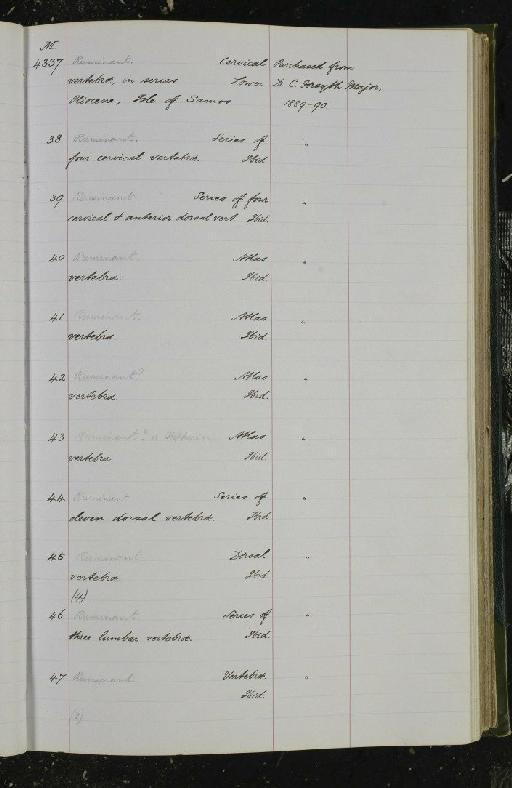 No.
4337 Ruminant. Cervical Purchased from
vertebræ, in series Lower Dr. C. Forsyth Major,
Pliocene, Isle of Samos 1889-90
38 Ruminant. Series of "
four cervical vertebræ. Ibid.
39 Ruminant Series of four "
cervical & anterior dorsal vert. Ibid.
40 Ruminant. Atlas "
vertebra. Ibid.
41 Ruminant. Atlas "
vertebra Ibid.
42 Ruminant? Atlas "
vertebra Ibid.
43 Ruminant? Atlas "
vertebra Ibid.
44 Ruminant Series of "
eleven dorsal vertebræ. Ibid.
45 Ruminant Dorsal "
vertebra Ibid.
(4)
46 Ruminant. Series of "
three lumbar vertebræ. Ibid.
47 Ruminant Vertebræ. "
Ibid.
(2)